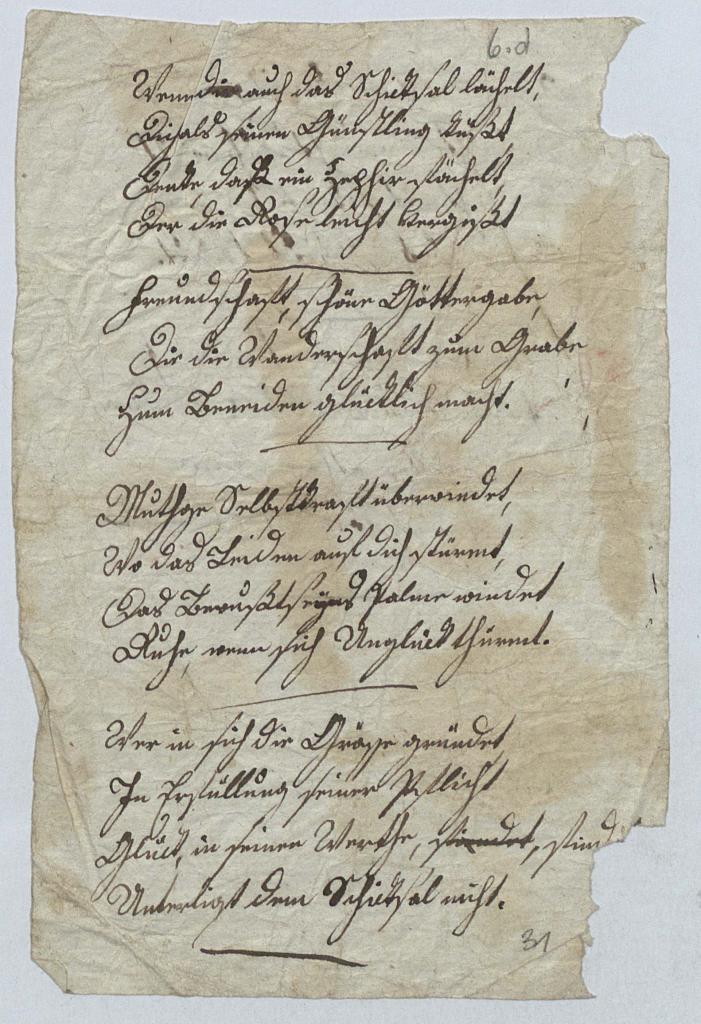 6.d
Wenn dir auch das Schicksal lächelt,
Dich als seinen Günstling küßt,
Denke, daß ein Zephir fächelt,
Der die Rose leicht vergißt
Freundschaft, schöne Göttergabe,
Die die Wanderschaft zum Grabe
Zum Beneiden glücklich macht.
Muthge Selbstkraft überwindet,
Wo das Leiden auf dich stürmt,
Das Bewußtseyns Palme windet
Ruhe, wenn sich Unglück thürmt.
Wer in sich die Grösse gründet,
In Erfüllung seiner Pflicht
Glück, in seinen Werthe, findet,
Unterligt dem Schicksal nicht.
31